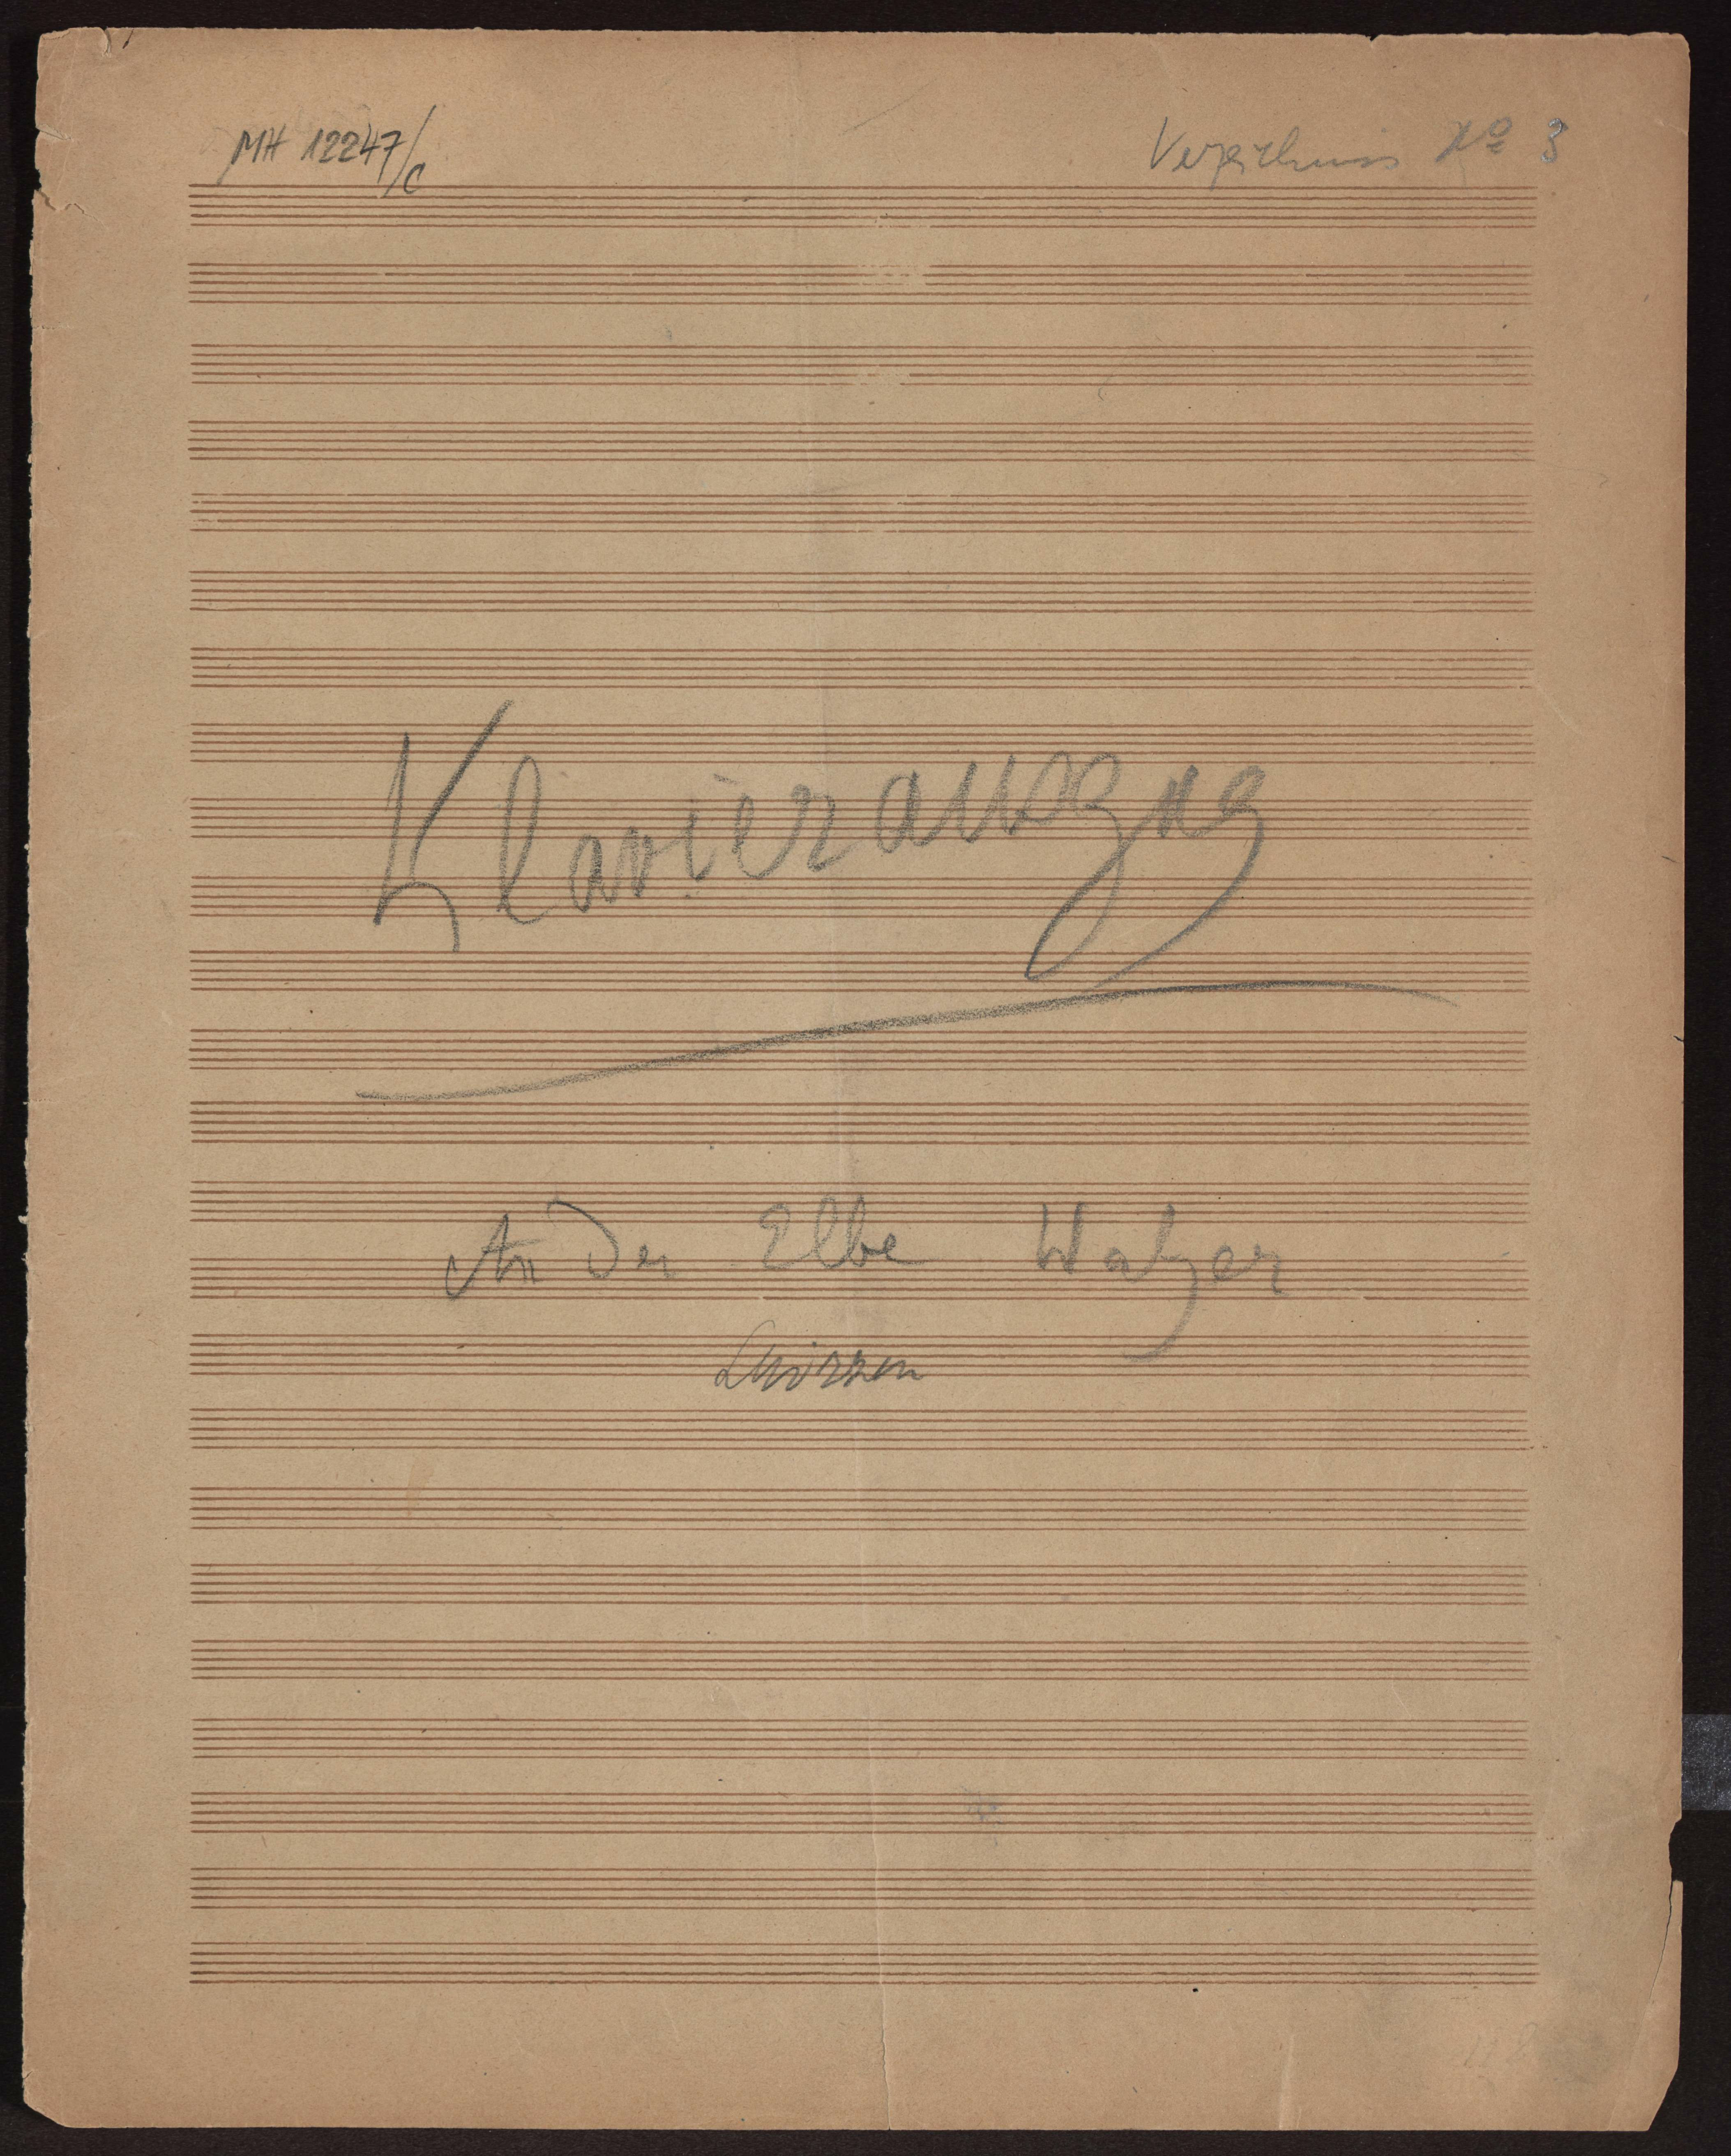 MH 12247/c
Verzeichniss No 3
Klavierauszug
An der Elbe Walzer
Skizzen